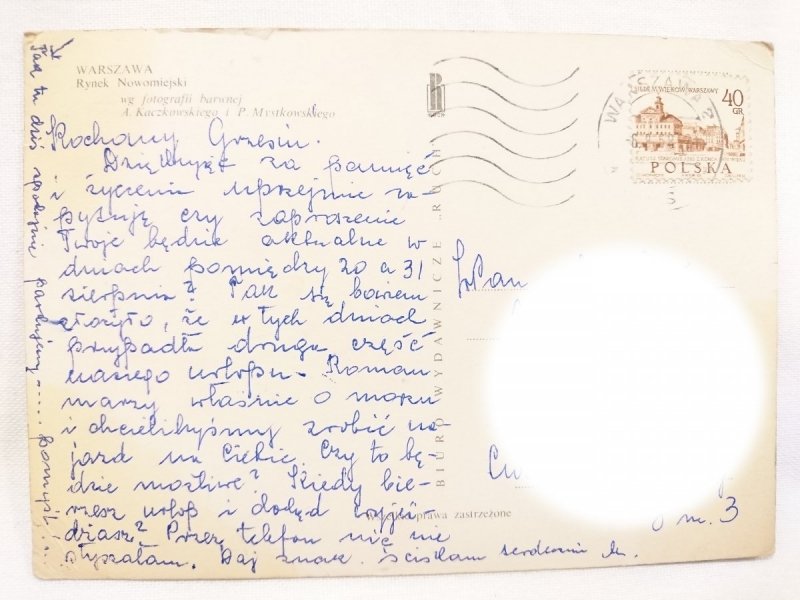 WARSZAWA
Rynek Nowomiejski
wg fotografii barwnej
A. Kaczkowskiego i P. Mystkowskiego
Kochany Grzesiu.
Dziękując za pamięć
i życzenia uprzejmie za-
pytuję czy zaproszenie
Twoje będzie aktualne w
dniach pomiędzy 20 a 31
sierpnia? Tak się bowiem
złożyło, że w tych dniach
przypadła druga część
naszego urlopu. Roman
marzy właśnie o morzu
i chcielibyśmy zrobić na-
jazd na Ciebie. Czy to bę-
dzie możliwe? Kiedy bie-
rzesz urlop i dokąd wyjeż-
dżasz? Przez telefon nic nie
słyszałam. Daj znak. Ściskam serdecznie
Tak tu dziś spokojnie
BIURO WYDAWNICZE „RUCH"
prawa zastrzeżone
SIEDEM WIEKÓW WARSZAWY
40
GR
POLSKA
WARSZAWA
Pan
m. 3